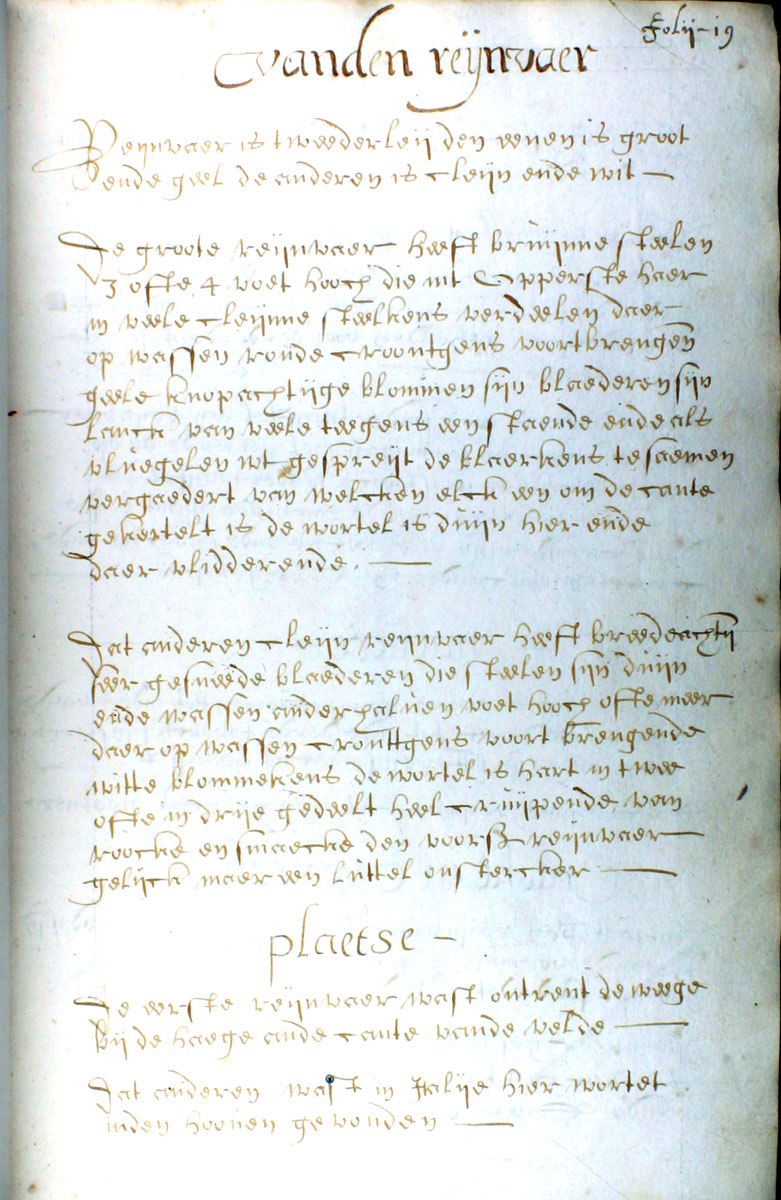 Folij-19
Vanden reijnvaer
Reijnvaer is tweederleij den eenen is groot
ende geel de anderen is cleijn ende wit —
De groote reijnvaer heeft bruijnne steelen
3 ofte 4 voet hooch die int opperste haer
in veele cleijnne steelkens verdeelen daer
op wassen ronde croontgens voortbrengen
geele knopachtijge blommen sijn blaederen sijn
lanck van veele teegens een staende ende als
vluegelen wt gespreijt de blaerkens te saemen
vergaedert van welcken elck een om de cante
gekertelt is de wortel is duijn hier ende
daer vlidderende. —
Dat anderen cleijn reijnvaer heeft breedeachtij
seer gesneede blaederen die steelen sijn duijn
ende wassen anderhalven voet hooch ofte meer
daer op wassen cronttgens voort brengende
witte blommekens de wortel is hart in twee
ofte in drije gedeelt heel cruijpende van
roocke en smaecke den voorß reijnvaer —
gelijck maer een luttel onstercker —
plaetse —
De eerste reijnvaer wast ontrent de weege
bij de haege ande cante vande velde —
Dat anderen wast in Italije hier wortet
inden hooven gevonden —